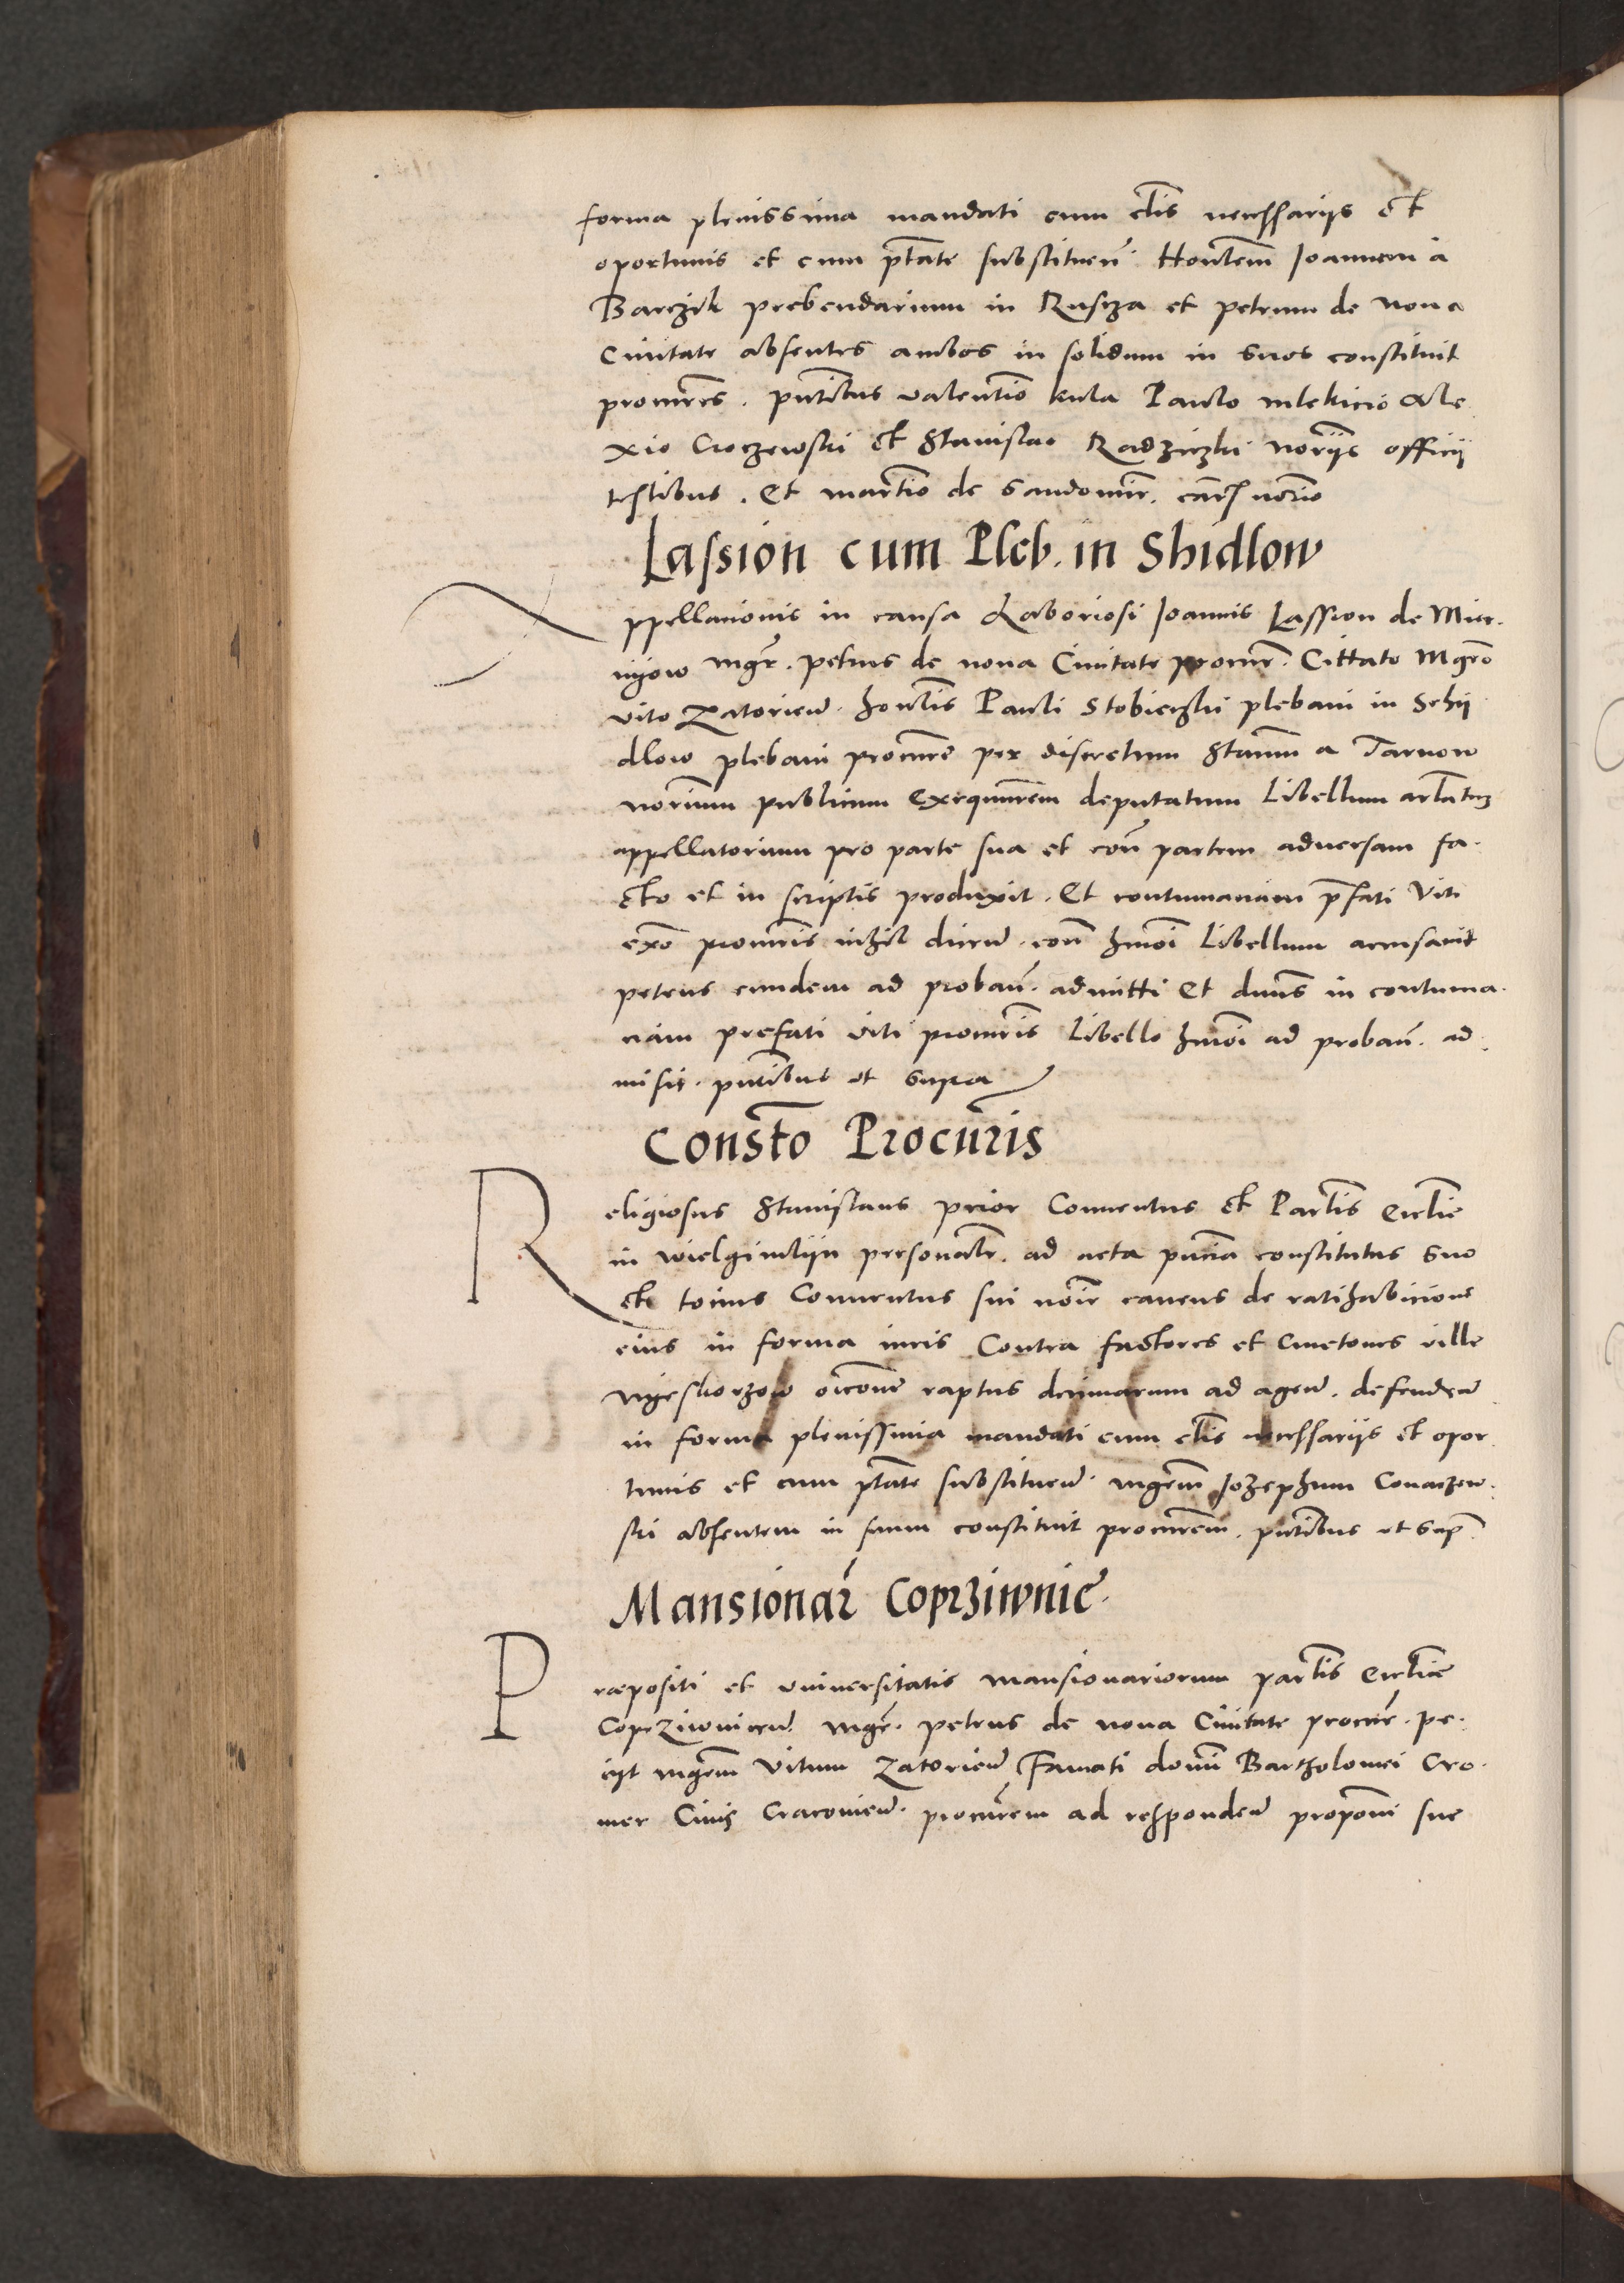 forma plenissima mandati cum cl̃is necessarijs et
oportunis et cum p̃tate substituen̄ Honl̃em Joannem a
Barczik prebendarium in Rusza et petrum de noua
Ciuitate absentes ambos in solidum in suos constituit
procur̃es . pñtibus valentĩo kula Paulo mlekicio Ale
xio Croczewski et Stanislao Radziczki nor̃ijs officij
testibus . Et martĩo de Sandomir . not̃rio
Lassion cum Pleb. in Shidlow
ppellacionis in causa Laboriosi Joannis Lassion de Mier.
nijow mgr̃ . petrus de noua Ciuitate procur̃ . Cittato Mgr̃o
vito Zatorien̄ . honl̃is Pauli Stobieczki plebani in Schij
dlow plebani procur̃e per discretum Stan̄um a Tarnow
norium publicum Exequutorem deputatum Libellum artlatum
appellatorium pro parte sua et con̄ partem aduersam fa.
cto et in scriptis produxit . Et contumaciam p̃fati Viti
ex̃o procur̃is nihil dicen̄ . con̄ hmõi Libellum accusauit
petens eundem ad proban̄ . admitti Et dñus in contuma.
ciam prefati viti procur̃is Libello hmõi ad proban̄ . ad
misit . pñtibus vt supra
Const̃o Procur̃is
Religiosus Stanislaus prior Conuentus et Parl̃is Eccl̃ie
in wielgimlijn personal̃r . ad acta pñcia constitutus suo
et tocius Conuentus sui noĩe cauens de ratihabicione
eius in forma iuris Contra factores et Cmetones ville
Nijeskorzow oĩcone raptus decimarum ad agen̄ . defenden̄
in forma plenissima mandati cum cl̃is necessarijs et opor
tunis et cum p̃tate substituen̄ . mgr̃m Jozephum Conaczew.
ski absentem in suum constituit procur̃em . pñtibus vt sup̃
Mansionar̃ Coprziwnic̃.
Præpositi et vniuersitatis mansionariorum parl̃is Eccl̃ie
Coprziwnicen̄ mgr̃ . petrus de noua Ciuitate procur̃ . pe.
cijt mgr̃m Vitum Zatorien̄ Famati domĩ Bartholomei Cro.
mer Ciuis Cracouien̄ . procur̃em ad responden̄ propõni sue